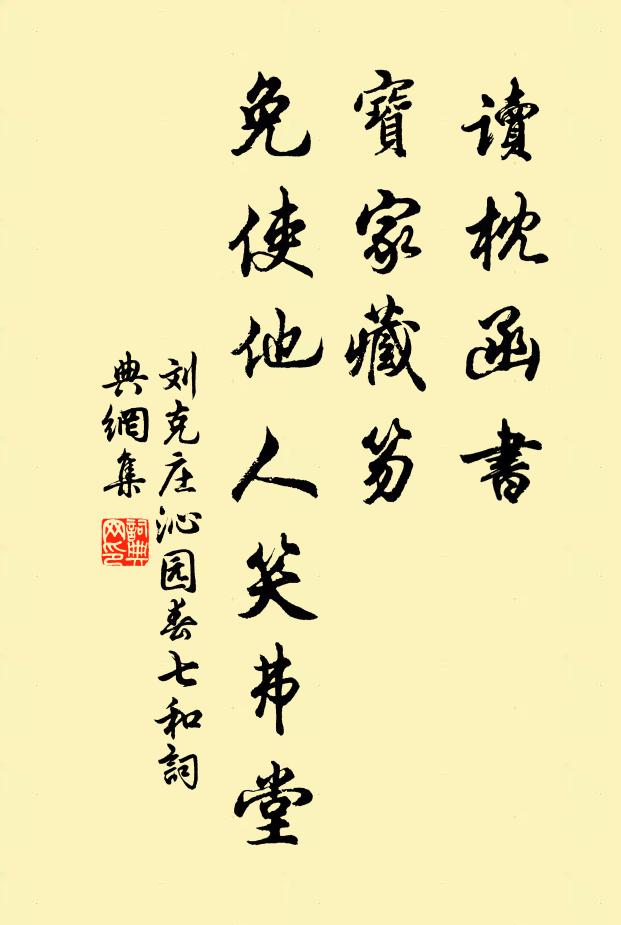 讀枕函書
寶家藏笏
免使他人笑弗堂
刘克庄沁园春七和詞
典網集
詞典
网印